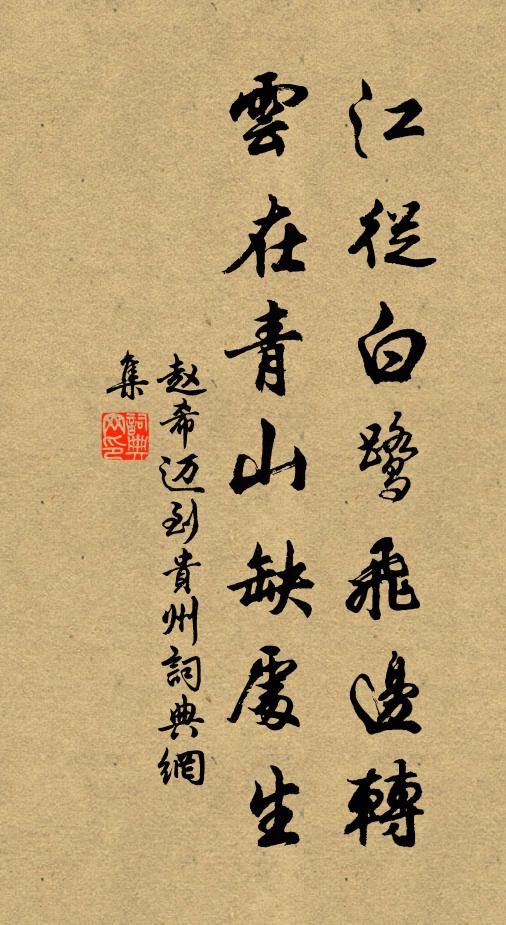 江從白鷺飛邊轉
雲在青山缺處生
赵希迈到貴州詞典網
集
詞典网印